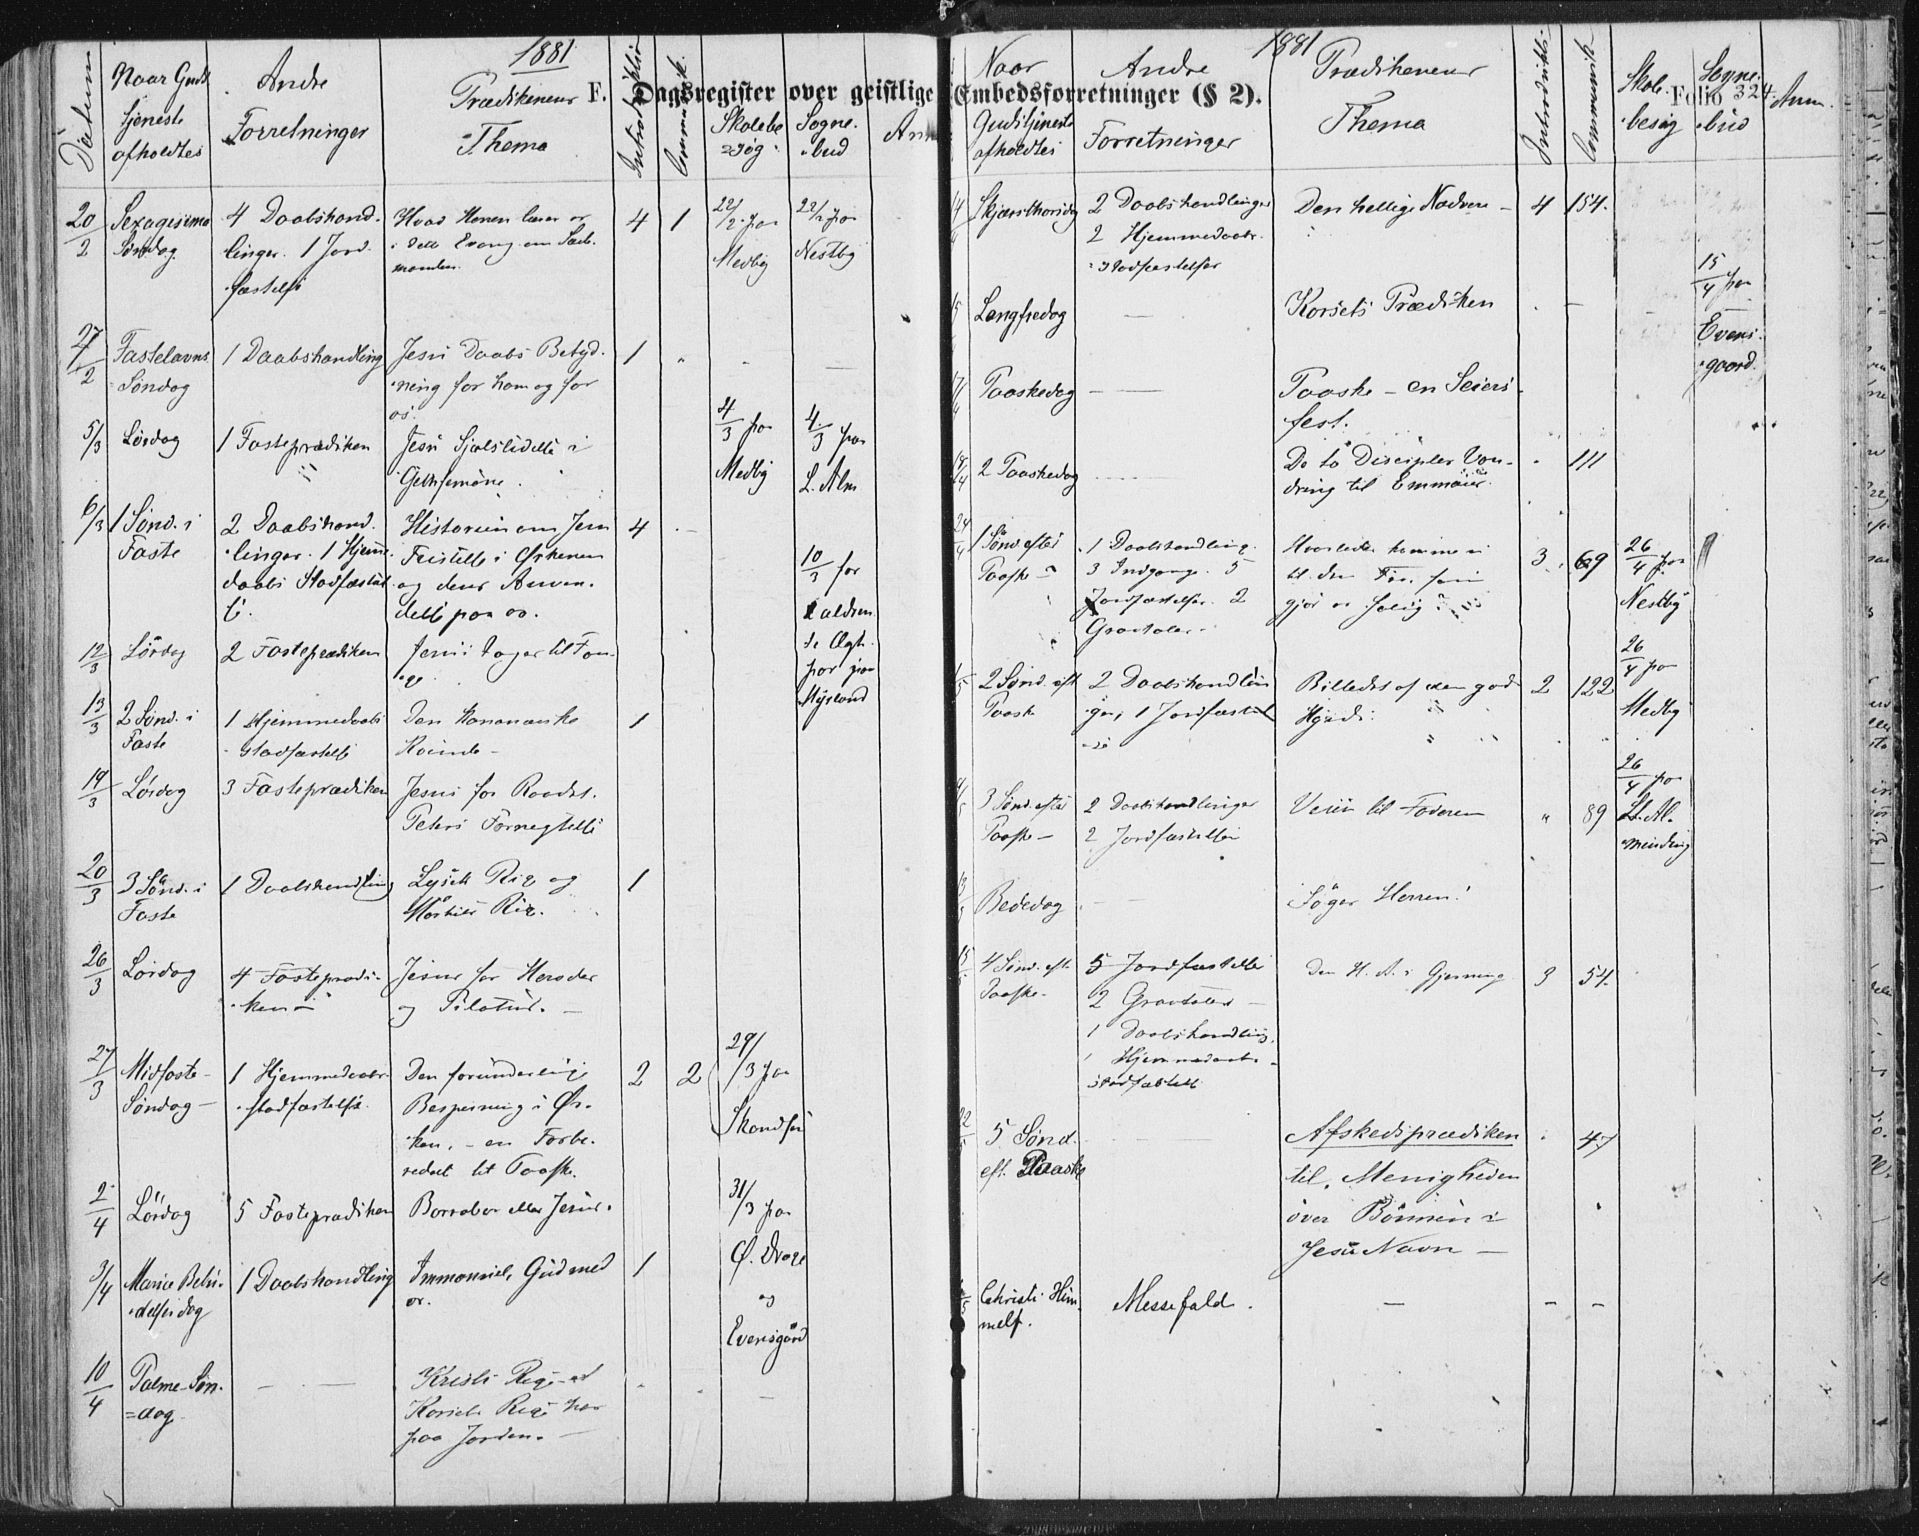 1881
F. Dagsregister over geistlige
Datum
Naar Guds
tjeneste
afholdtes
Andre
Forretninger
Prædikenens
Thema
Introduktion
Communik.
Skolebe
søg
Sogne
bud
Anm
20/2
Sexagesima
Søndag
4 Daabshand-
linger. 1 Jord-
fæstelse
Hvad Herren lærer os
i dette Evang. om Sæd-
manden.
4
1
22/2 paa
Medby
22/2 paa
Nestby
27/2
Fastelavns
Søndag
1 Daabshandling
Jesu Daabs Betyd-
ning for ham og for
os.
1
5/3
Lørdag
1 Fasteprædiken
Jesu Sjælslidelse i
Gethsemane.
4/3 paa
Medby
4/3 paa
L. Alm
6/3
1 Sønd. i
Faste
2 Daabshand-
linger. 1 Hjemme
daabs Stadfæstel
Historien om Jesu
Fristelse i Ørkenen
og dens Anven-
delse paa os.
4
10/3 for
Myrland
12/3
Lørdag
2 Fasteprædiken
Jesus tages til Fan-
ge.
13/3
2 Sønd. i
Faste
1 Hjemmedaabs
stadfæstelse
Den kananæiske
Kvinde
1
19/3
Lørdag
3 Fasteprædiken
Jesus for Raadet.
Peters Fornegtelse
20/3
3 Sønd. i
Faste
1 Daabshandling
Lysets Rige og
Mørkets Rige.
1
26/3
Lørdag
4 Fasteprædi-
ken
Jesus for Herodes
og Pilatus.
27/3
Midfaste-
Søndag
1 Hjemmedaabs-
stadfæstelse
Den forunderlige
Bespisning i Ør-
ken, - en Forbe-
redelse til Paaske.
2
2
29/3 paa
2/4
Lørdag
5 Fasteprædiken
Barrabas eller Jesus.
31/3 paa
Ø. Drage
og
Evensgård
3/4
Mariæ Bebu-
delsesdag
1 Daabshandling
Immanuel, Gud med
os.
1
10/4
Palme-Søn-
=dag
Kristi Rige - et
Korsets Rige her
paa Jorden.
1881
Embedsforretninger (§ 2).
Folio 324.
Naar
Gudstjeneste
afholdtes
Andre
Forretninger
Prædikenens
Thema
Introduktion
Communik.
Skole-
besøg
Sogne-
bud
Anm.
Skjærthorsdag
2 Daabshandlinger
2 Hjemmedaabs-
stadfæstelser
Den hellige Nadvere
4
154.
Langfredag
Korsets Prædiken
15/4 paa
Evens-
gaard.
Paaskedag
Paaske - en Seiers-
fest.
2 Paaskedag
De to Disciples Van-
dring til Emmaus.
111
24/4
1 Sønd. efter
Paaske
1 Daabshandling.
3 Indgange. 5
Jordfæstelser. 2
Gravtaler
Hvorledes komme vi
gjør os salig?
3
69
26/4 paa
Nestby
2 Sønd. eft
Paaske
2 Daabshandlin
ger, 1 Jordfæstel
se
Billedet af den gode
Hyrde.
2
122
26/4 paa
Medby
3 Sønd. efter
Paaske
2 Daabshandlinger
2 Jordfæstelser
Veien til Faderen
89
26/4 paa
St. Al-
minding
Bededag
Søger Herren!
4 Sønd. eft.
Paaske
5 Jordfæstelse
2 Gravtaler
1 Daabshandling,
1 Hjemmedaabs-
stadfæstelse
Den H. A. i Gjerning
3
54.
22/5
5 Sønd.
eft. Paaske
Afskedsprædiken
til Menigheden
over Bønnen i
Jesu Navn
47
Christi Him-
melf.
Messefald.